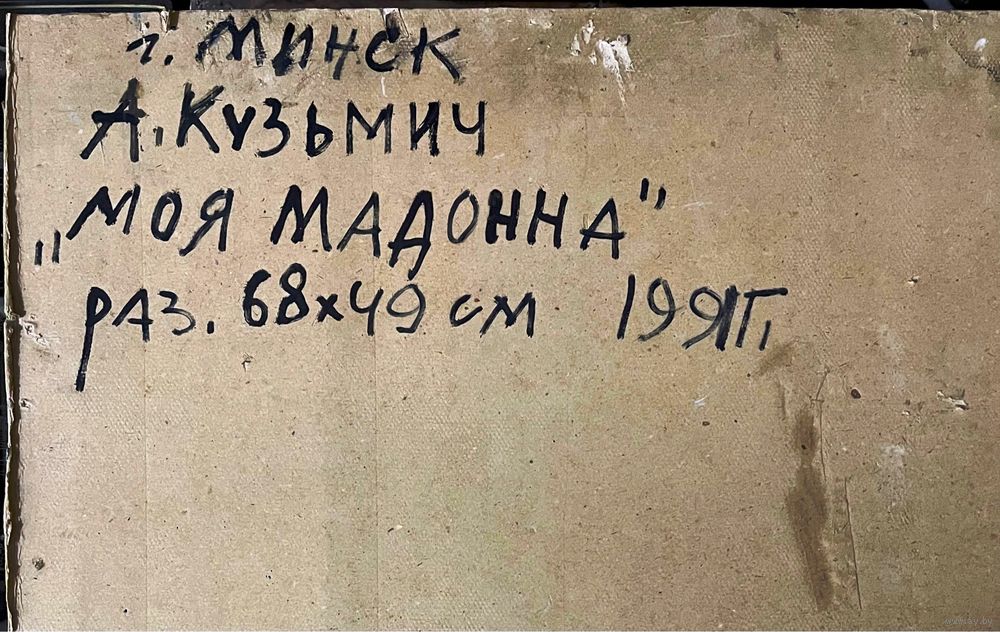 г. Минск
А. Кузьмич
„Моя Мадонна"
раз. 68х49 см 1991г.